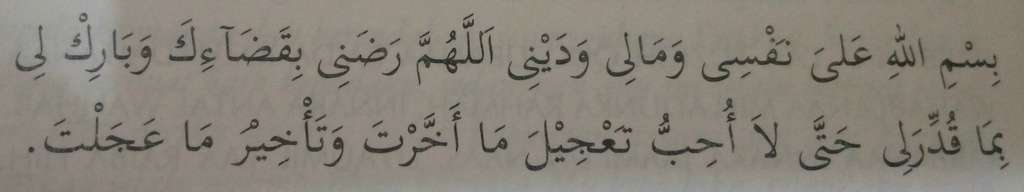 بِسْمِ اللهِ عَلىَ نَفْسِى وَمَالِى وَدَيْنِى اَللَّهُمَّ رَضَنِى بِقَضَآءِكَ وَبَارِكْ لِى
بِمَا قُدِّرَلِى حَتَّى لاَ أُحِبُّ تَعْجِيْلَ مَا أَخَّرْتَ وَتَأْخِيْرُ مَا عَجَلْتَ.